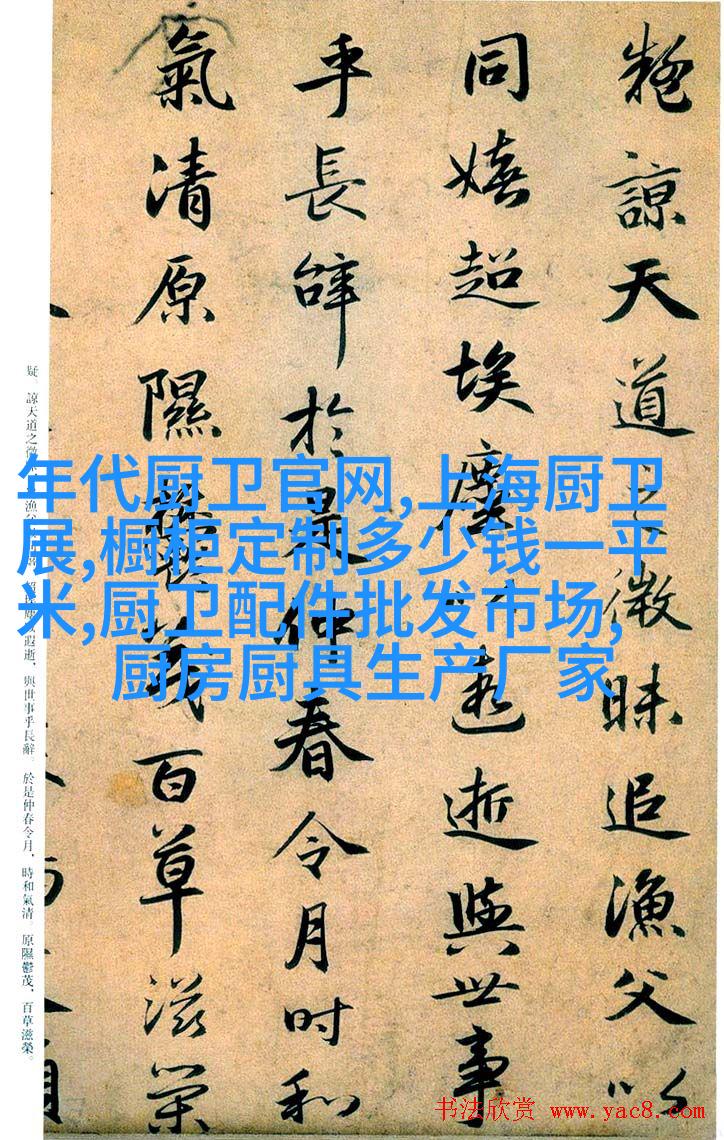 疑諒天道之微昧追漁父以
同嬉超埃塵以遐逝與世事
乎長辭於是仲春令月時和
氣清原隰鬱茂百草滋榮
疑。諒天道之微 漁 遐逝，與世事乎長辭。於是仲春令月，時和氣清。原隰鬱茂，百草滋榮。
年代厨卫官网,上海厨卫
展,橱柜定制多少钱一平
米,厨卫配件批发市场,
厨房厨具生产厂家
书法欣赏 www.yac8.com